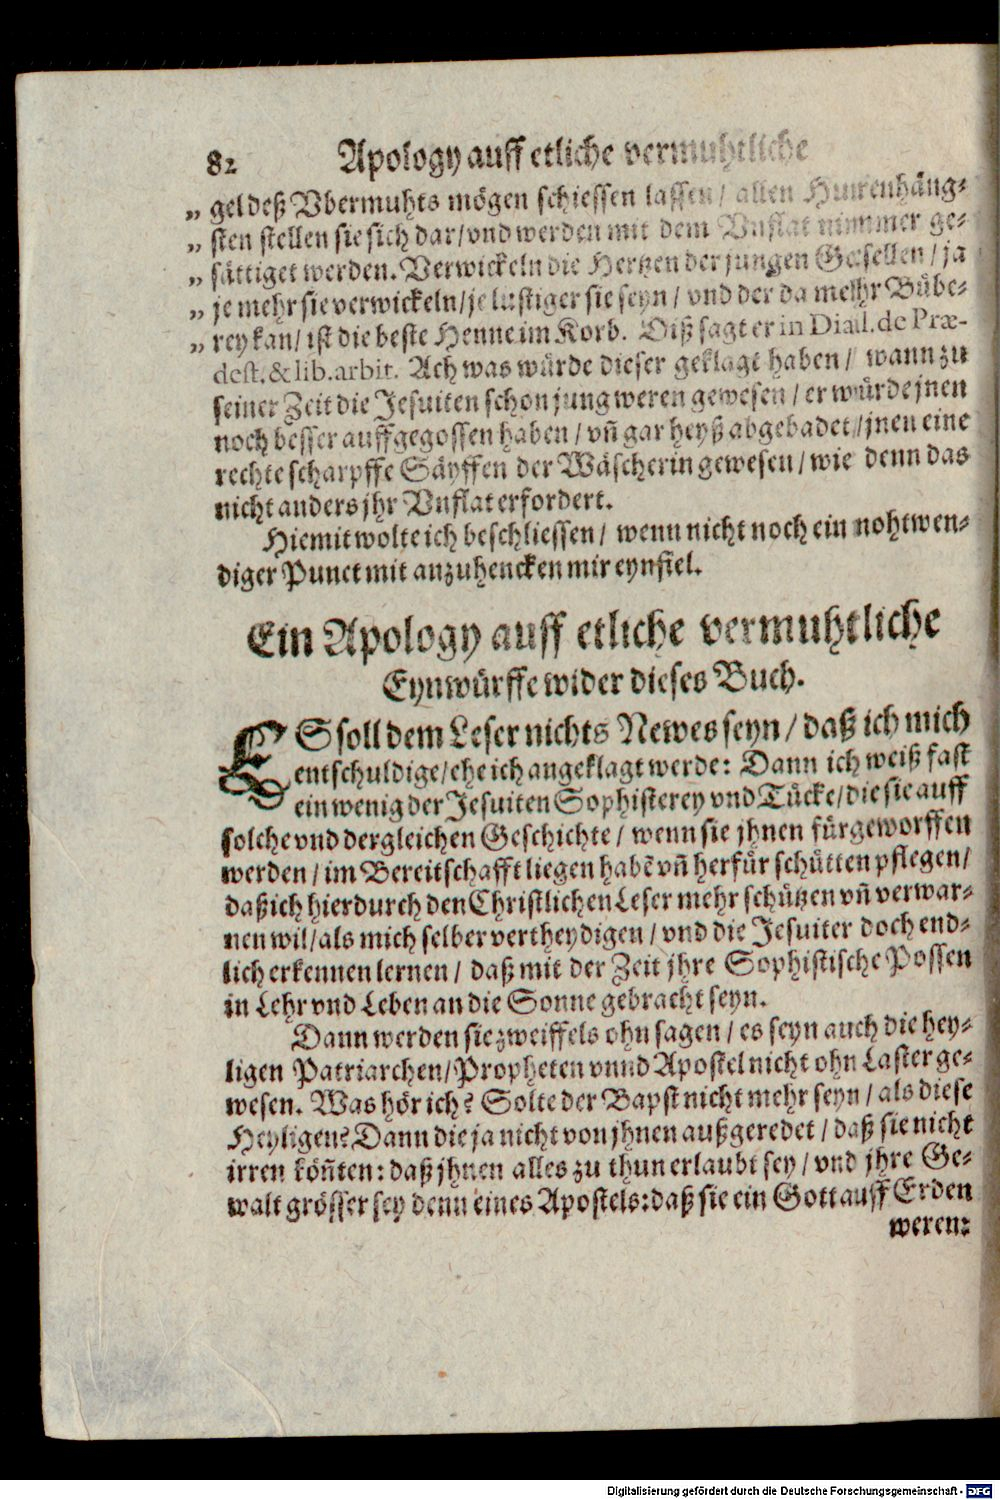 82 Apology auff etliche vermuhtliche
„ gel deß Vbermuhts mögen schiessen lassen / allen Hurrenhäng-
„ sten stellen sie sich dar / vnd werden mit dem Vnflat nimmer ge-
„ sättiget werden. Verwickeln die Hertzen der jungen Gesellen / ja
„ je mehr sie verwickeln / je lustiger sie seyn / vnd der da mehr Bübe-
„ rey kan / ist die beste Henne im Korb. Diß sagt er in Dial. de Præ-
dest. & lib. arbit. Ach was würde dieser geklagt haben / wann zu
seiner Zeit die Jesuiten schon jung weren gewesen / er würde jnen
noch besser auffgegossen haben / vñ gar heyß abgebadet / jnen eine
rechte scharpffe Säyffen der Wäscherin gewesen / wie denn das
nicht anders jhr Vnflat erfordert.
Hiemit wolte ich beschliessen / wenn nicht noch ein nohtwen-
diger Punct mit anzuhencken mir eynfiel.
Ein Apology auff etliche vermuhtliche
Eynwürffe wider dieses Buch.
ES soll dem Leser nichts Newes seyn / daß ich mich
entschuldige / ehe ich angeklagt werde: Dann ich weiß fast
ein wenig der Jesuiten Sophisterey vnd Tücke / die sie auff
solche vnd dergleichen Geschichte / wenn sie jhnen fürgeworffen
werden / im Bereitschafft liegen habē vñ herfür schütten pflegen /
daß ich hierdurch den Christlichen Leser mehr schützen vñ verwar-
nen wil / als mich selber vertheydigen / vnd die Jesuiter doch end-
lich erkennen lernen / daß mit der Zeit jhre Sophistische Possen
in Lehr vnd Leben an die Sonne gebracht seyn.
Dann werden sie zweiffels ohn sagen / es seyn auch die hey-
ligen Patriarchen / Propheten vnnd Apostel nicht ohn Laster ge-
wesen. Was hör ich? Solte der Bapst nicht mehr seyn / als diese
Heyligen? Dann die ja nicht von jhnen außgeredet / daß sie nicht
irren köñten: daß jhnen alles zu thun erlaubt sey / vnd jhre Ge-
walt grösser sey denn eines Apostels: daß sie ein Gott auff Erden
weren:
Digitalisierung gefördert durch die Deutsche Forschungsgemeinschaft - DFG